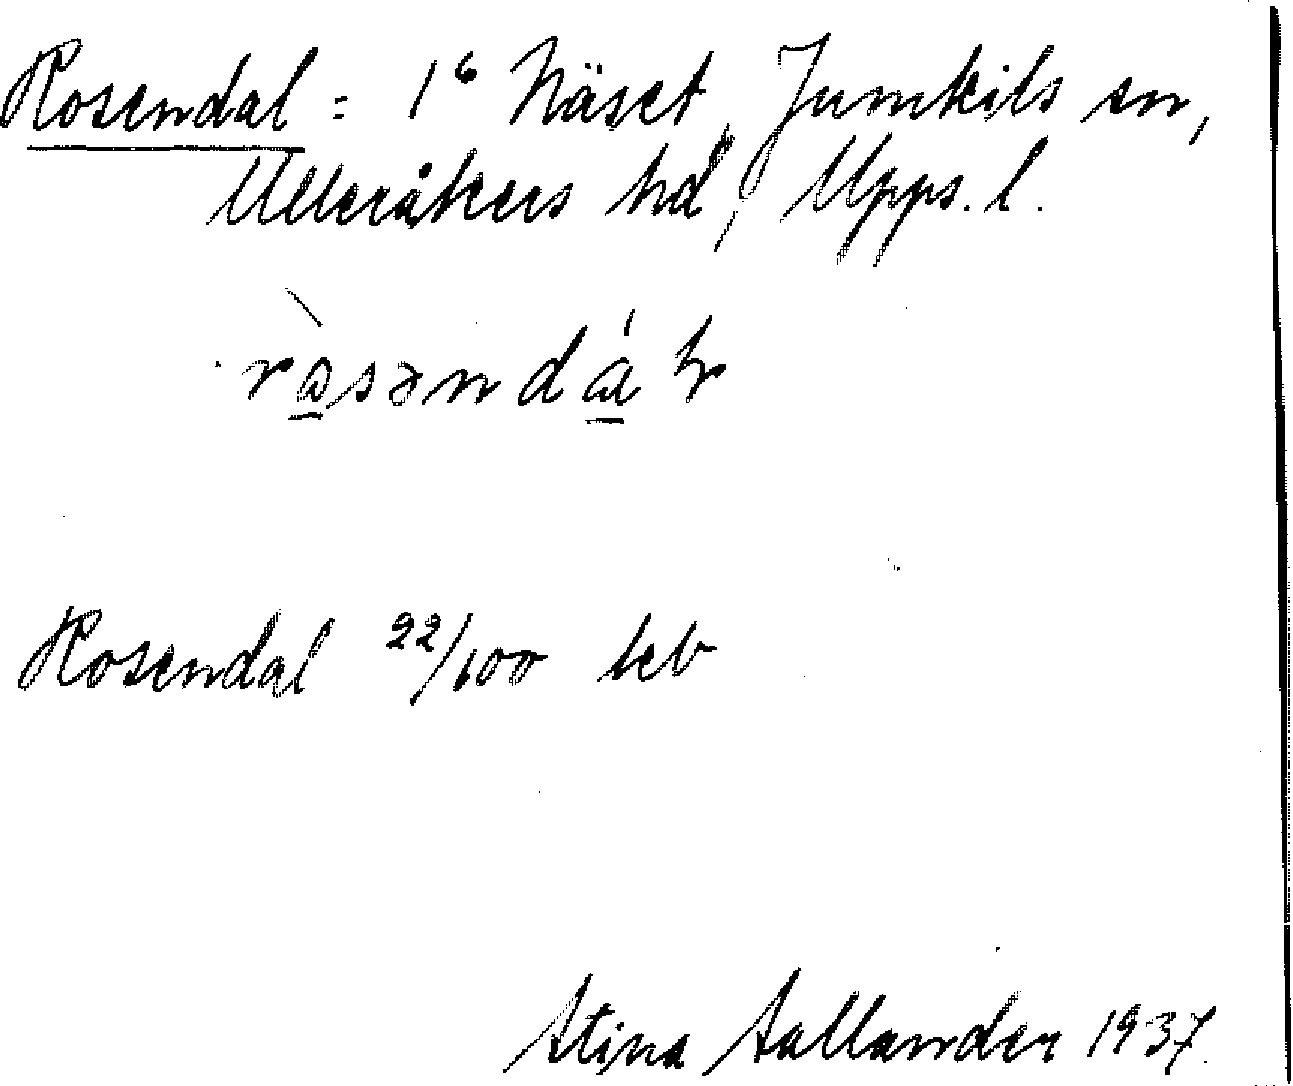 Rosendal = 1⁶ Näset, Jumkils sn,
Ulleråkers hd, Upps. l.
Rosendal 22/100 keb
Stina Sallander 1937.